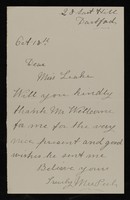 Hill
Dartford
Oct 12th
Dear
Miss
Will you kindly
thank Mr Wellcome
for me for the very
nice present and good
wishes he sent me
Believe me